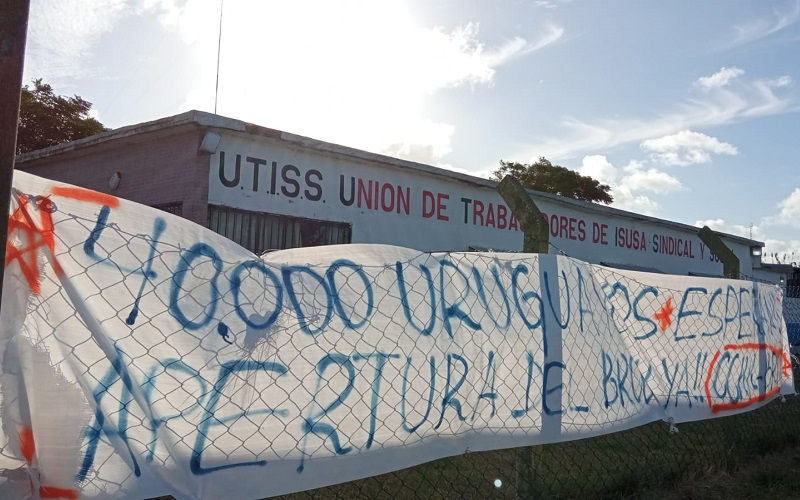 U.T.I.S.S. UNION DE TRABAJADORES DE ISUSA SINDICAL Y
40000 URUGUAYOS ESPE
APERTURA DEL BROU YA!!